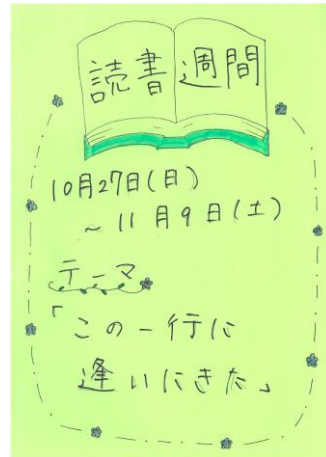 読書週間
10月27日(日)
～11月9日(土)
テーマ
「この一行に
逢いにきた」